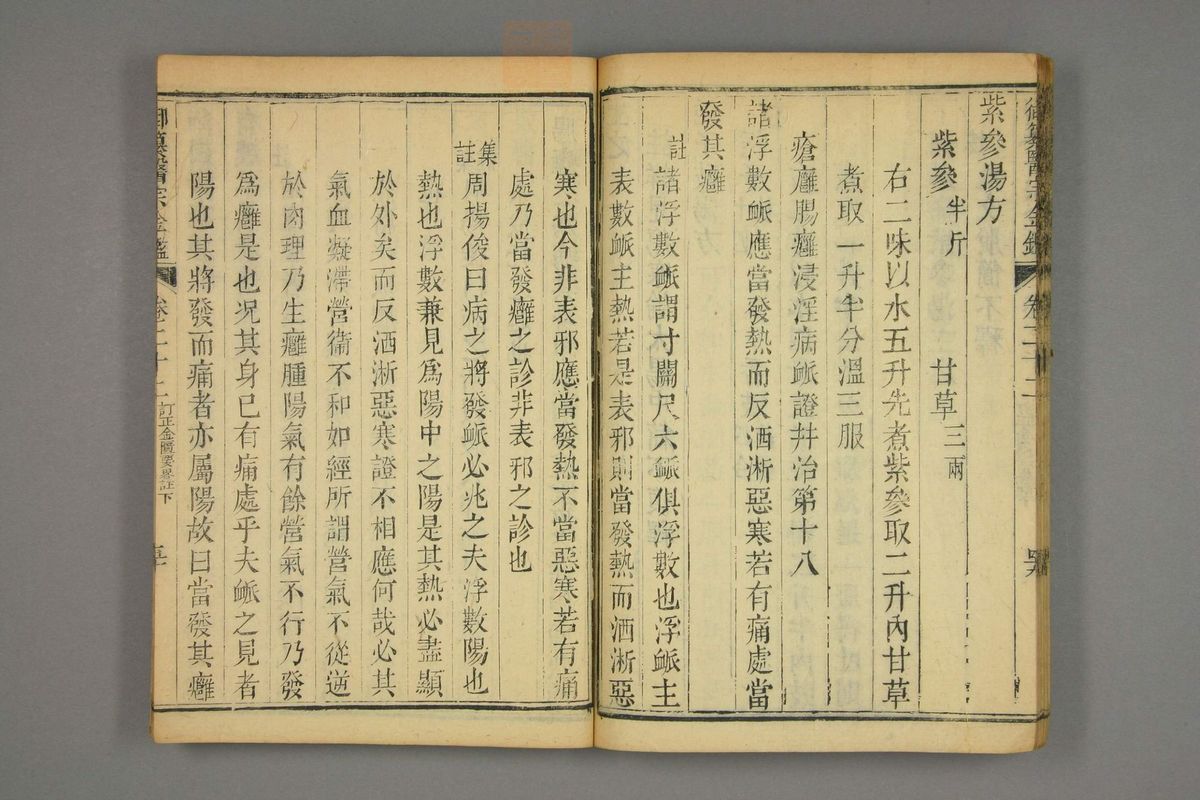 御纂醫宗金鑑 卷二十二
紫參湯方
紫參半斤 甘草三兩
右二味以水五升先煮紫參取二升內甘草
煮取一升半分溫三服
瘡癰腸癰浸淫病脈證并治第十八
諸浮數脈應當發熱而反洒淅惡寒若有痛處當
發其癰
註 諸浮數脈謂寸關尺六脈俱浮數也浮脈主
表數脈主熱若是表邪則當發熱而洒淅惡
寒也今非表邪應當發熱不當惡寒若有痛
處乃當發癰之診非表邪之診也
集註 周揚俊曰病之將發脈必兆之夫浮數陽也
熱也浮數兼見爲陽中之陽是其熱必盡顯
於外矣而反洒淅惡寒證不相應何哉必其
氣血凝滯營衞不和如經所謂營氣不從逆
於肉理乃生癰腫陽氣有餘營氣不行乃發
爲癰是也况其身已有痛處乎夫脈之見者
陽也其將發而痛者亦屬陽故曰當發其癰
御纂醫宗金鑑 卷二十二 訂正金匱要畧註下